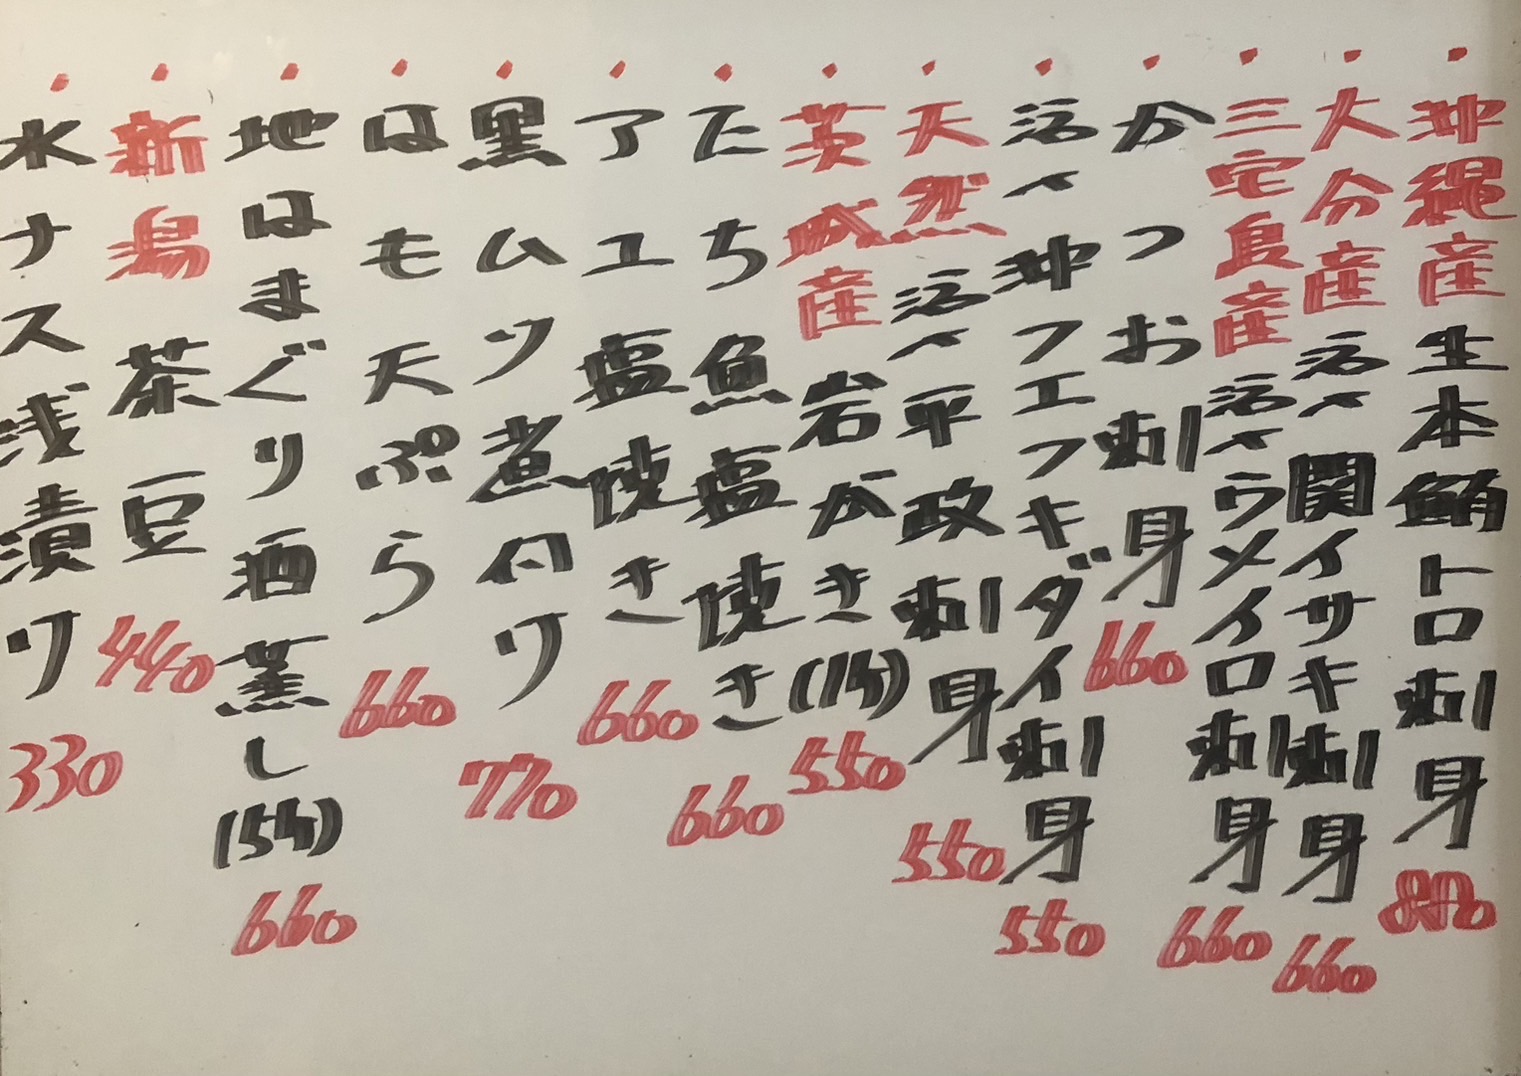 ・沖縄産生本鮪トロ刺身 880
・大分産活〆関イサキ刺身 660
・三宅島産活〆ウメイロ刺身 660
・かつお刺身 660
・活〆沖フエフキダイ刺身 550
・天然活〆平政刺身 550
・茨城産岩がき(1ケ) 550
・たち魚塩焼き 660
・アユ塩焼き 660
・黒ムツ煮付け 770
・はも天ぷら 660
・地はまぐり酒蒸し(5ケ) 660
・新潟茶豆 440
・水ナス浅漬け 330